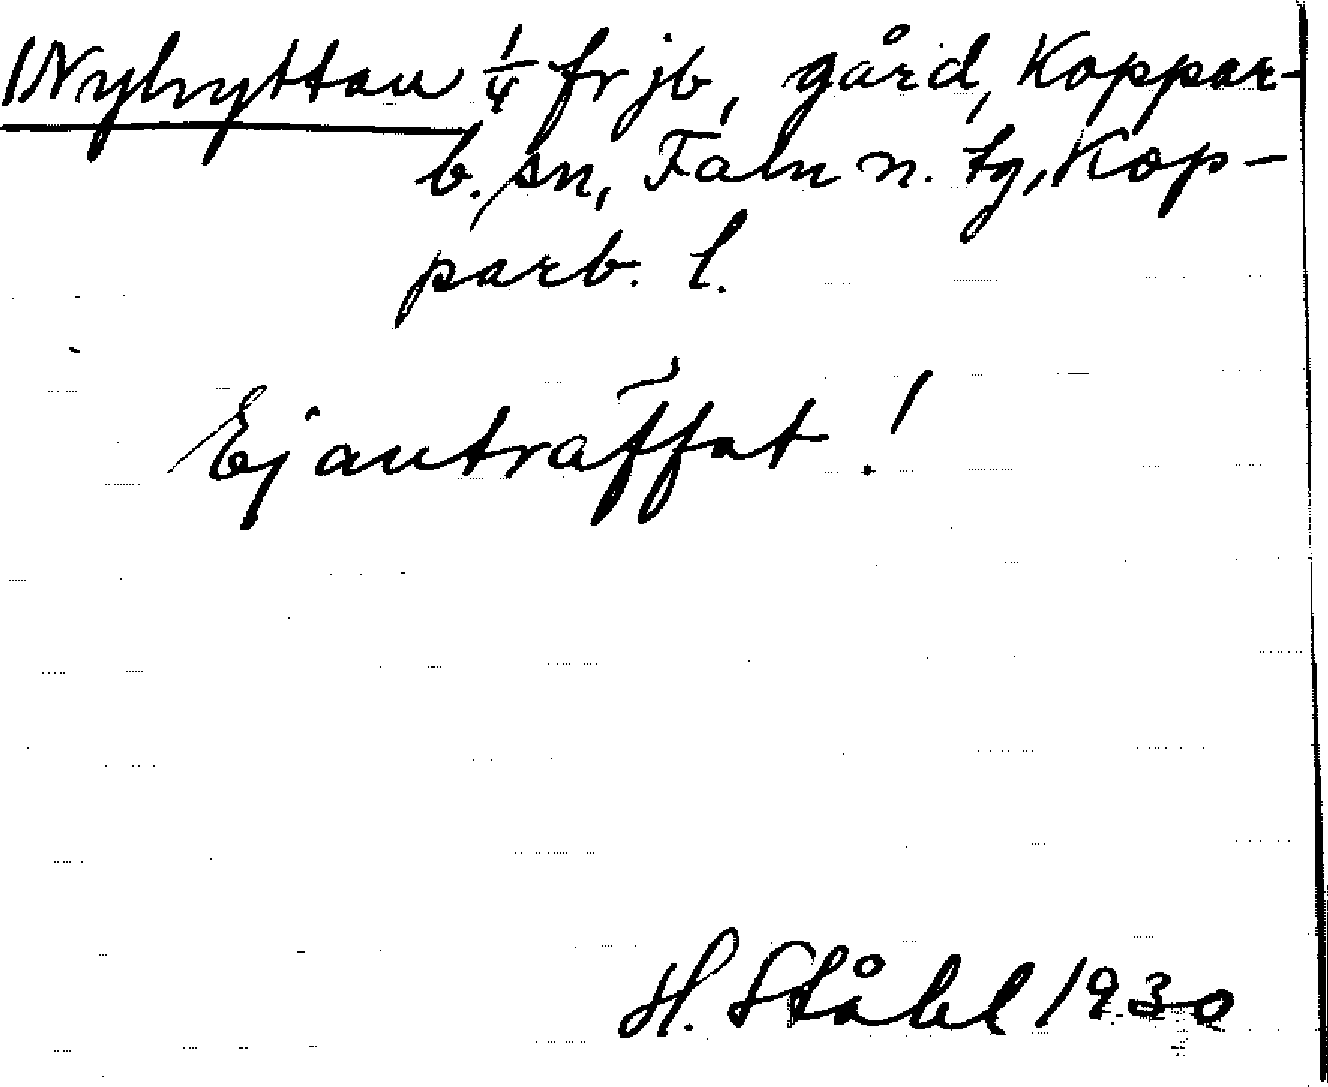 Nyhyttan 1/4 fr jb, gård, Koppar-
b. sn, Falu n. tg, Kop-
parb. l.
Ej anträffat!
H. Ståhl 1930